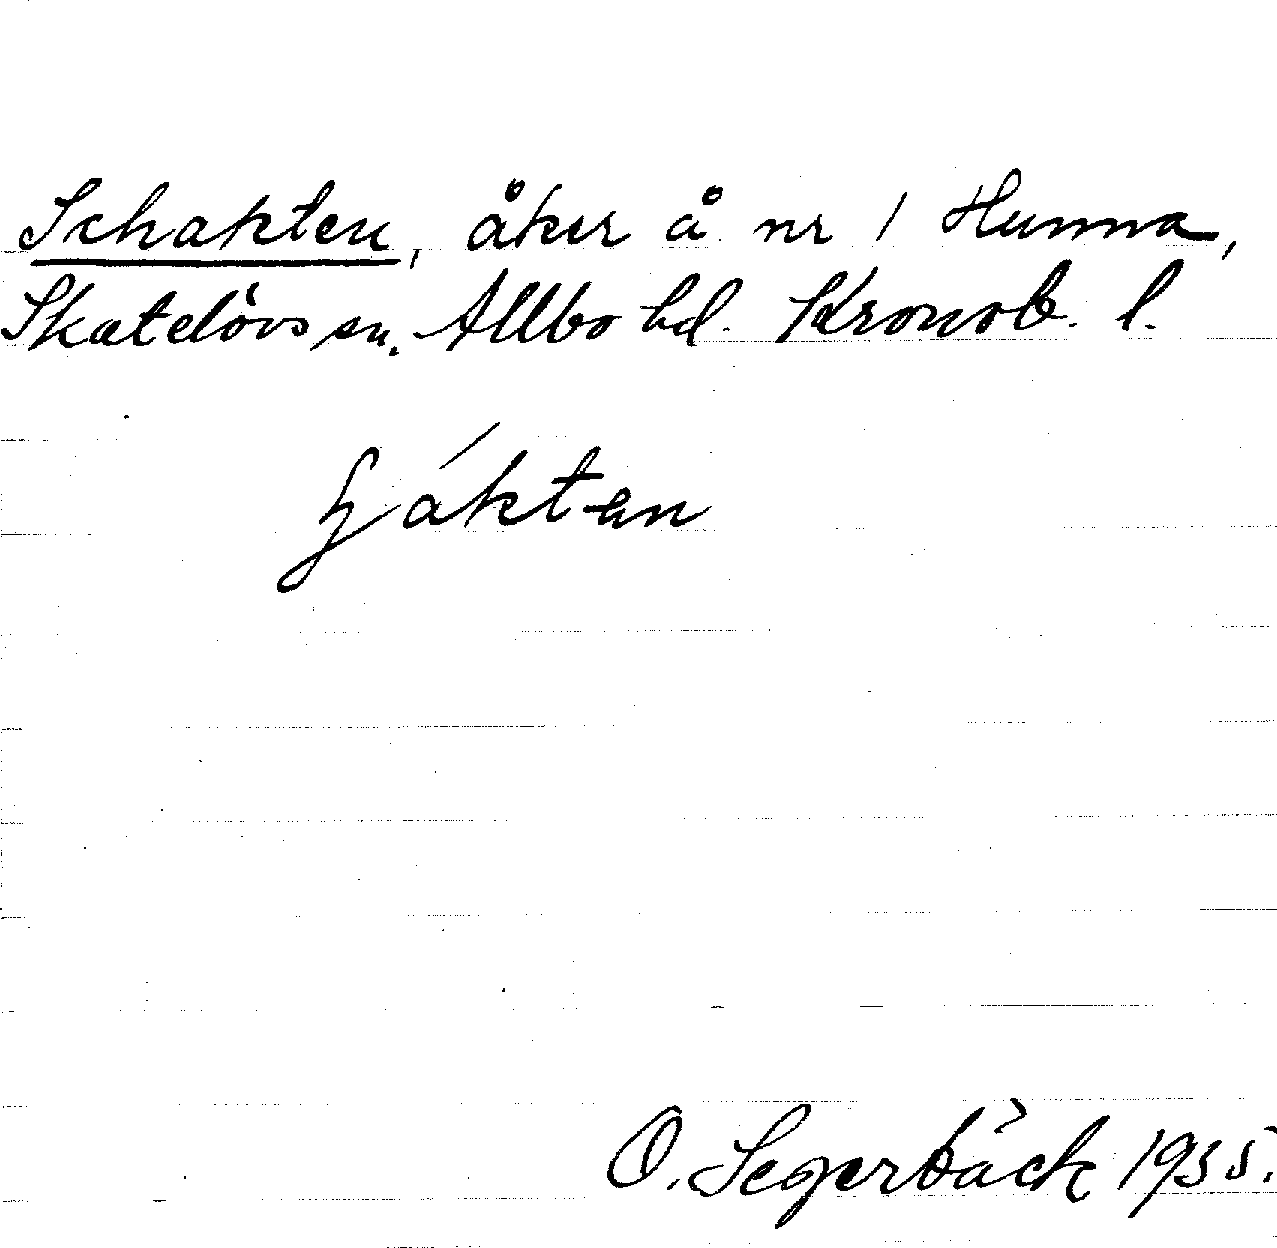 Schakten, åker å nr 1 Hunna,
Skatelövs sn. Allbo hd. Kronob. l.
ʃákten
O. Segerbäck 1935.